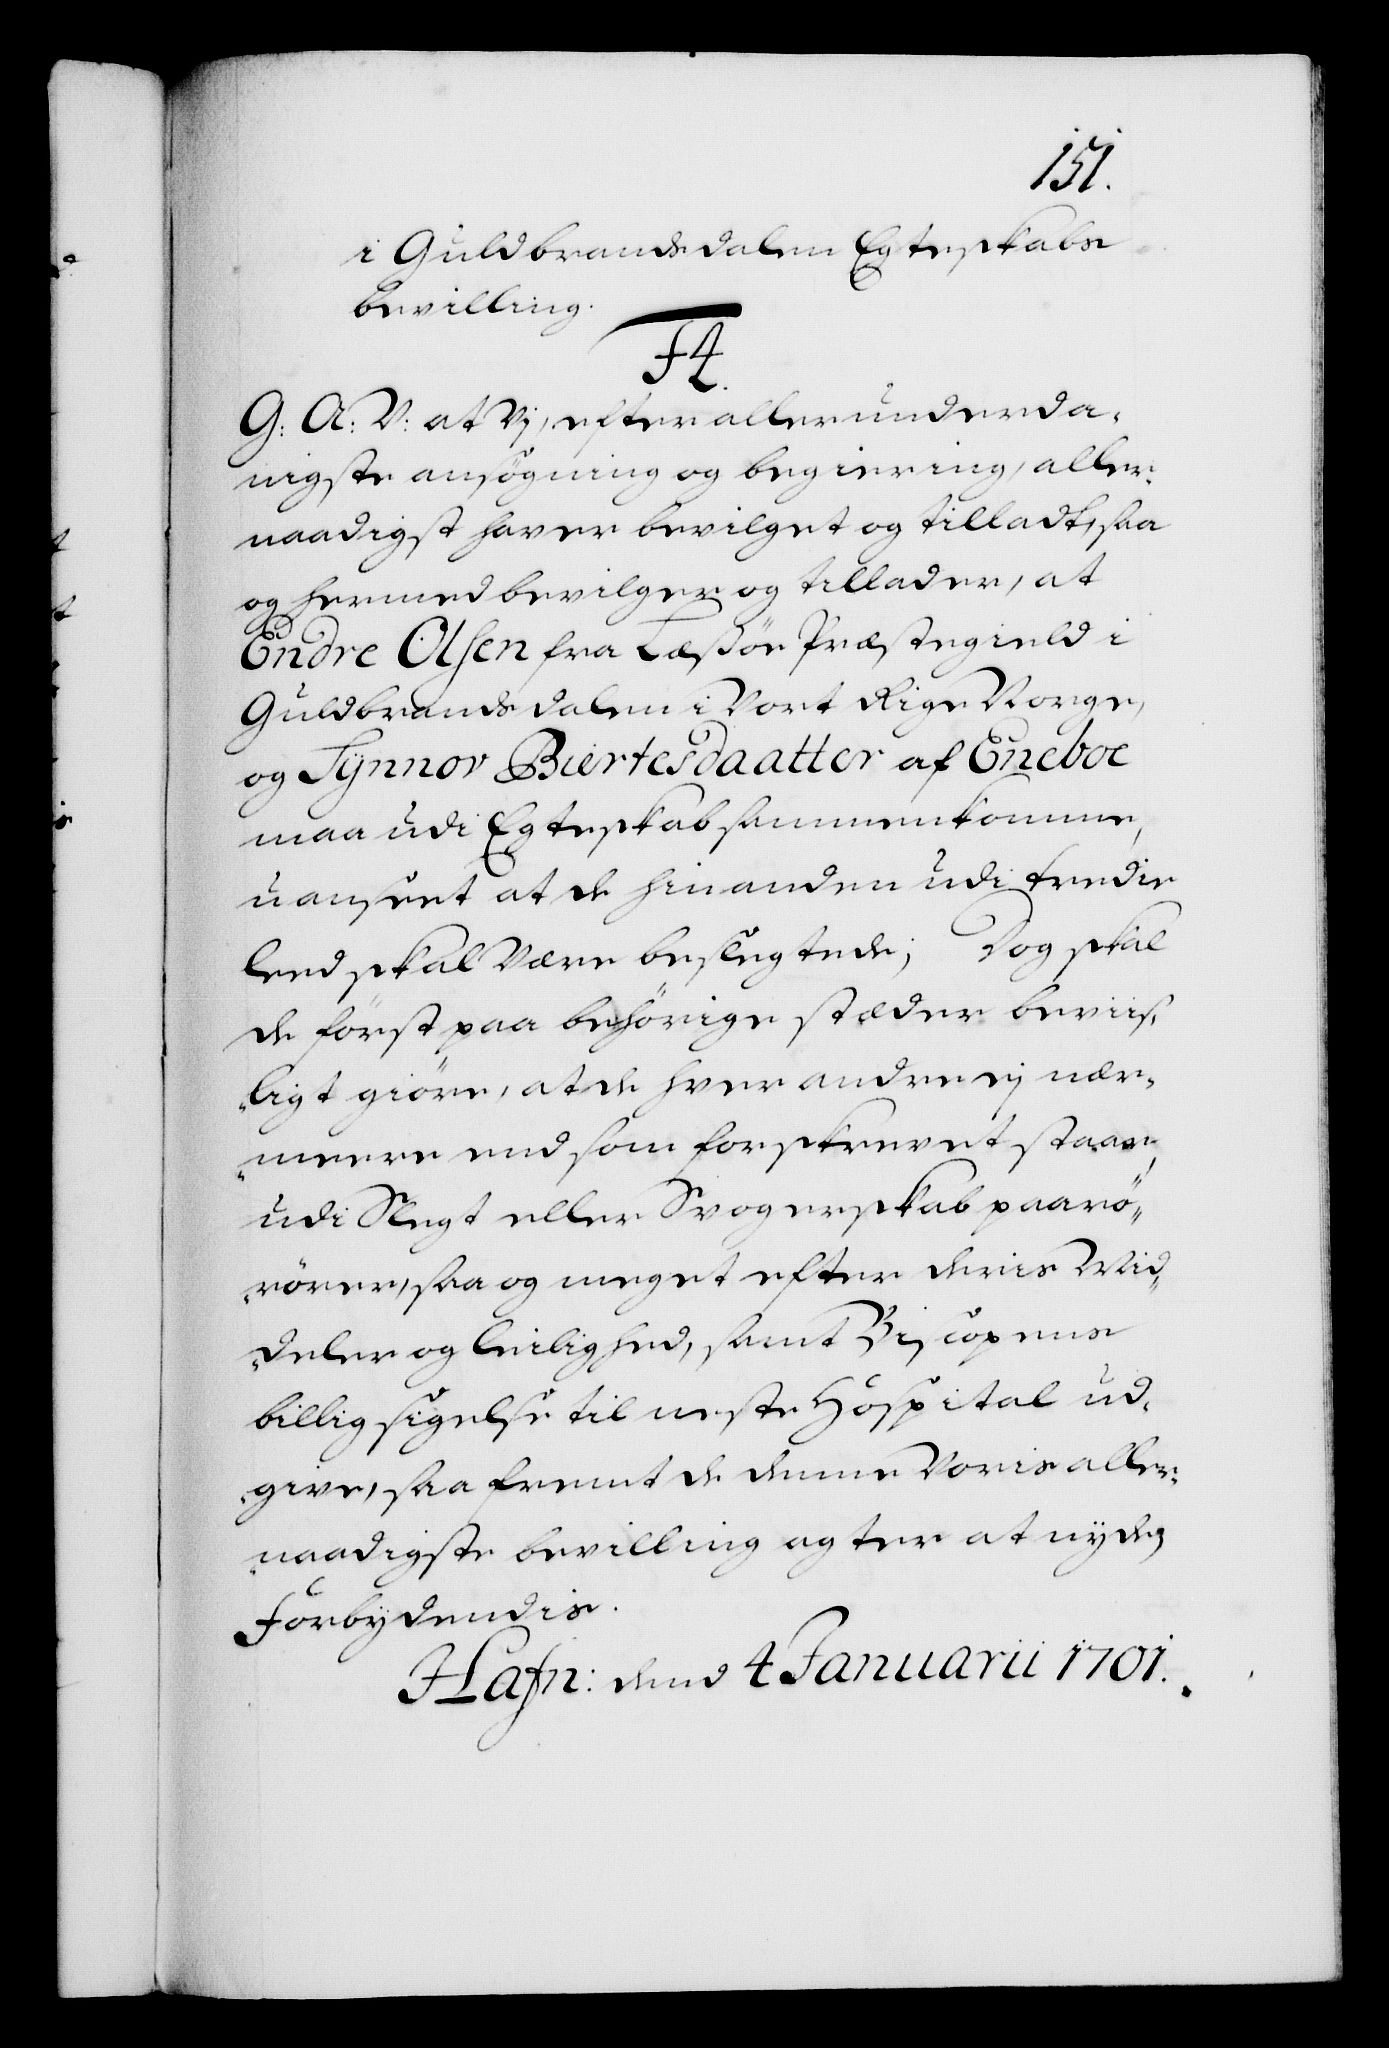 151.
i Guldbrandsdalen Egteskabs
bevilling.
F4.
G: A: V: at Vj, efter allerunderda-
nigste ansögning og begiering, aller-
naadigst hafver bevilget og tilladt, saa
og hermed bevilger og tillader, at
Endre Olsen fra Læssöe Præstegield i
Guldbrandsdalen i Vort Rige Norge,
og Synnov Biertesdaatter af Eneboe
maa udi Egteskab sammenkomme,
uanseet at de hinanden udi tredie
leed skal være beslegtede; Dog skal
de först paa behörige stæder beviis-
ligt giöre, at de hver andre ej nær-
meere end som forskrevet staar,
udi Slegt eller Svogerskab paarö-
rörer, saa og meget efter deris Mid-
deler og leilighed, samt Biscopens
billigsigelse til neste Hospital ud-
give, saa fremt de denne Voris aller-
naadigste bevilling agter at nyde;
Forbydendis.
Hafn: dend 4 Januarii 1701.